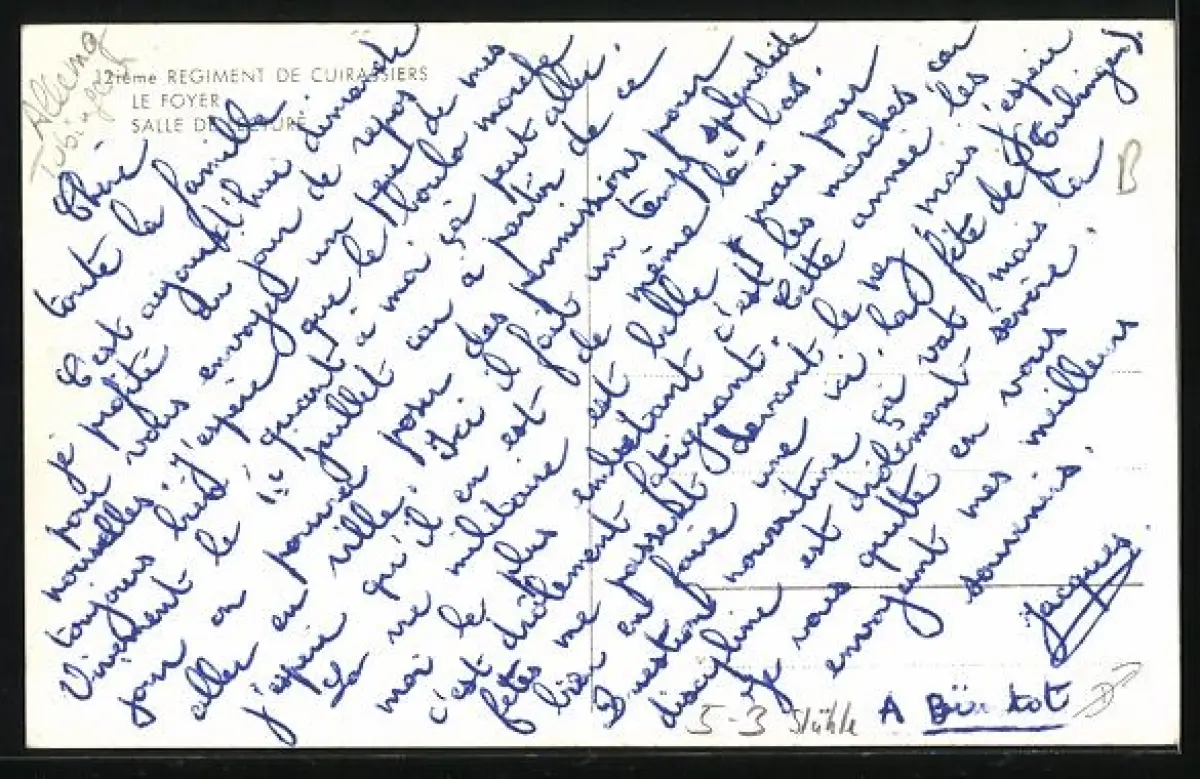 12ième REGIMENT DE CUIRASSIERS
LE FOYER
SALLE DE LECTURE
Allemag
Tubingen
Chère
toute la famille
C'est aujourd'hui dimanche
je profite du jour de repos
pour vous envoyer un peu de mes
nouvelles. j'espère que le boula marche
toujours bien, quant à moi ça peut aller
Vivement le 1er juillet car à partir de ce
jour on pourra poser des permissions pour
aller en ville. Ici il fait un temps splendide
j'espère qu'il en est de même là-bas.
La vie militaire est belle mais pour
moi le plus embetant c'est les marches car
c'est drôlement fatiguant. Cette année les
fêtes me passest devant le nez mais j'espère
bien en faire une ici. la fête de Tubingen).
Question nourriture ça vat, mais la
discipline est drôlement sévère.
Je vous quitte en vous
envoyeint mes meilleurs
souvenirs.
Jacques
A Bientot
5-3 Stühle
B